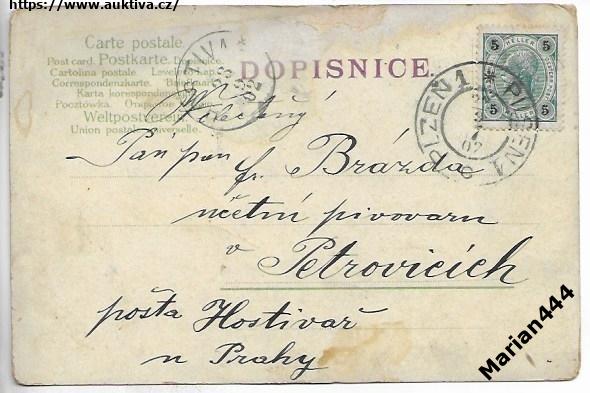 https://www.auktiva.cz/
Carte postale.
Post card. Postkarte. Dopisnice.
Cartolina postale. Levelező-lap.
Correspondenzkarte.
Karta korespondencyjna.
Pocztówka.
Weltpostverein.
Union postale universelle.
DOPISNICE.
HELLER
5 5
5 5
PLZEŇ 1 * PILSEN 1
02
Velectěný
Pán pan fr. Brázda
účetní pivovaru
v Petrovicích
pošta Hostivař
u Prahy
Marian444